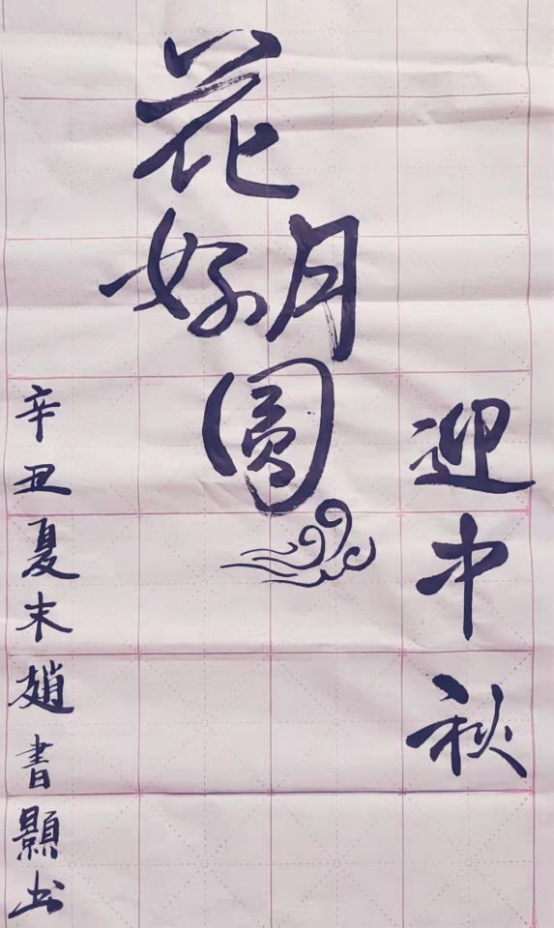 迎中秋
花好月圆
辛丑夏末赵書顯书